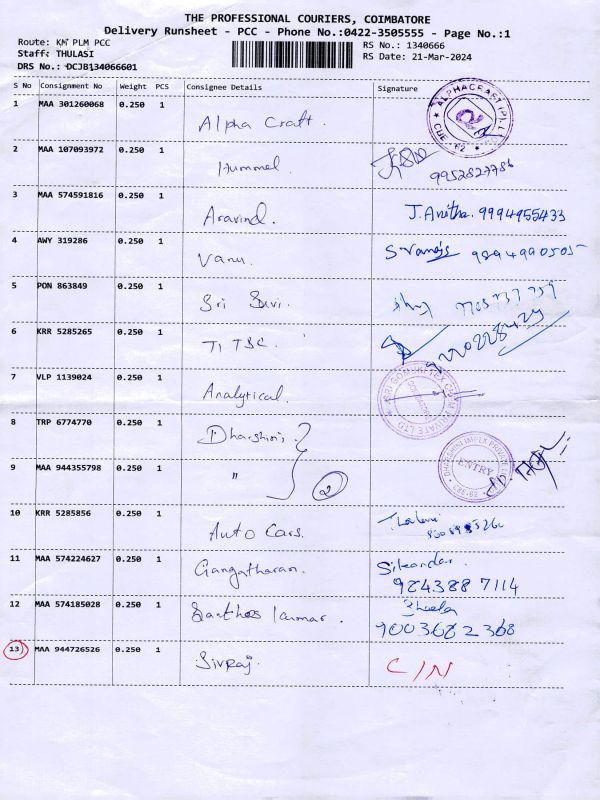 THE PROFESSIONAL COURIERS, COIMBATORE
Delivery Runsheet - PCC - Phone No.:0422-3505555 - Page No.:1
Route: KM PLM PCC
RS No.: 1340666
Staff: THULASI
RS Date: 21-Mar-2024
DRS No.: DCJB134066601
S No Consignment No Weight PCS Consignee Details Signature
1 MAA 301260068 0.250 1 Alpha Craft.
2 MAA 107093972 0.250 1 Hummel.
3 MAA 574591816 0.250 1 Aravind. J. Anitha. 9994955433
4 AWY 319286 0.250 1 Vanu. 9894990505
5 PON 863849 0.250 1 Sri Suvi.
6 KRR 5285265 0.250 1 TI TSC. 9220228429
7 VLP 1139024 0.250 1 Analytical.
8 TRP 6774770 0.250 1 Dharshini
ENTRY
9 MAA 944355798 0.250 1 " 2
10 KRR 5285856 0.250 1 Auto Cars.
11 MAA 574224627 0.250 1 Gangatharan. Sikandar
984388 7114
12 MAA 574185028 0.250 1 Santhos kumar. Sheela
9003682368
13 MAA 944726526 0.250 1 Sivraj. C/N